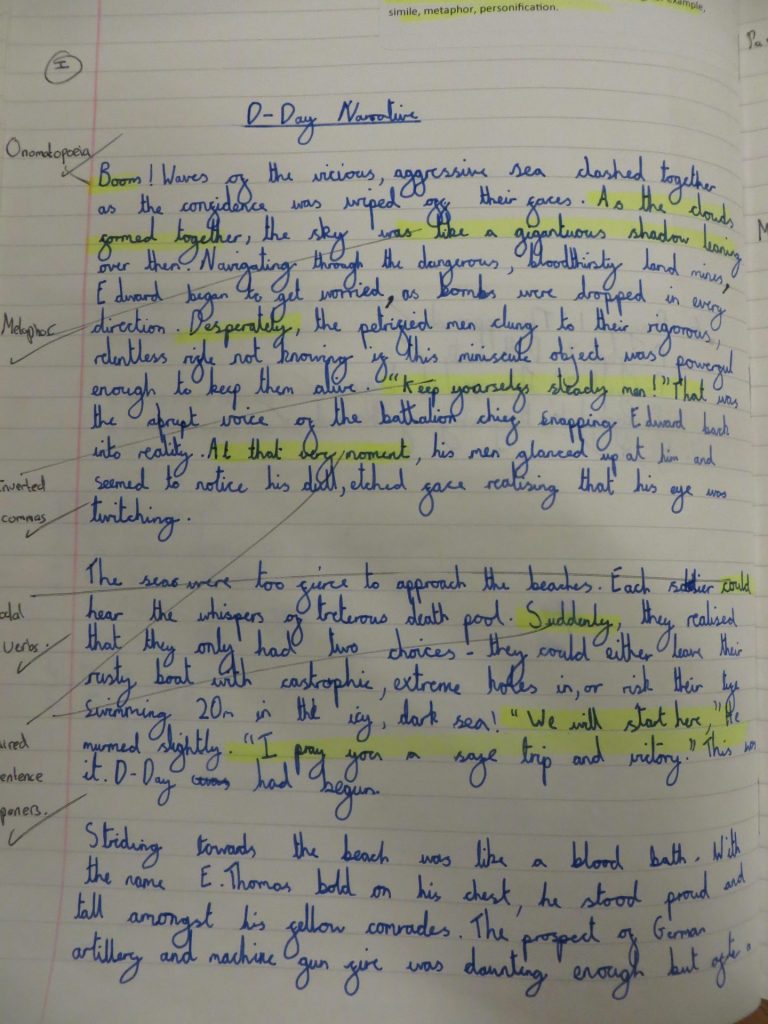 example,
simile, metaphor, personification.
I
D-Day Narrative
Onomatopoeia
Boom! Waves of the vicious, aggressive sea clashed together
as the confidence was wiped off their faces. As the clouds
formed together, the sky was like a gigantuous shadow leaning
over them. Navigating through the dangerous, bloodthirsty land mines,
Edward began to get worried, as bombs were dropped in every
Metaphor
direction. Desperately, the petrified men clung to their rigorous,
relentless rifle not knowing if this miniscule object was powerful
enough to keep them alive. "Keep yourselfs steady men!" That was
the abrupt voice of the battalion chief snapping Edward back
into reality. At that very moment, his men glanced up at him and
Inverted
seemed to notice his dull, etched face realising that his eye was
commas
twitching.
The seas were too fierce to approach the beaches. Each soldier could
hear the whispers of treterous death pool. Suddenly, they realised
verbs.
that they only had two choices - they could either leave their
rusty boat with castrophic, extreme holes in, or risk their life
swimming 20m in the icy, dark sea! "We will start here," He
murmed slightly. "I pray you a safe trip and victory." This was
it. D-Day was had begun.
Striding towards the beach was like a blood bath. With
the name E.Thomas bold on his chest, he stood proud and
tall amongst his fellow comrades. The prospect of German
artillery and machine gun fire was daunting enough but after a